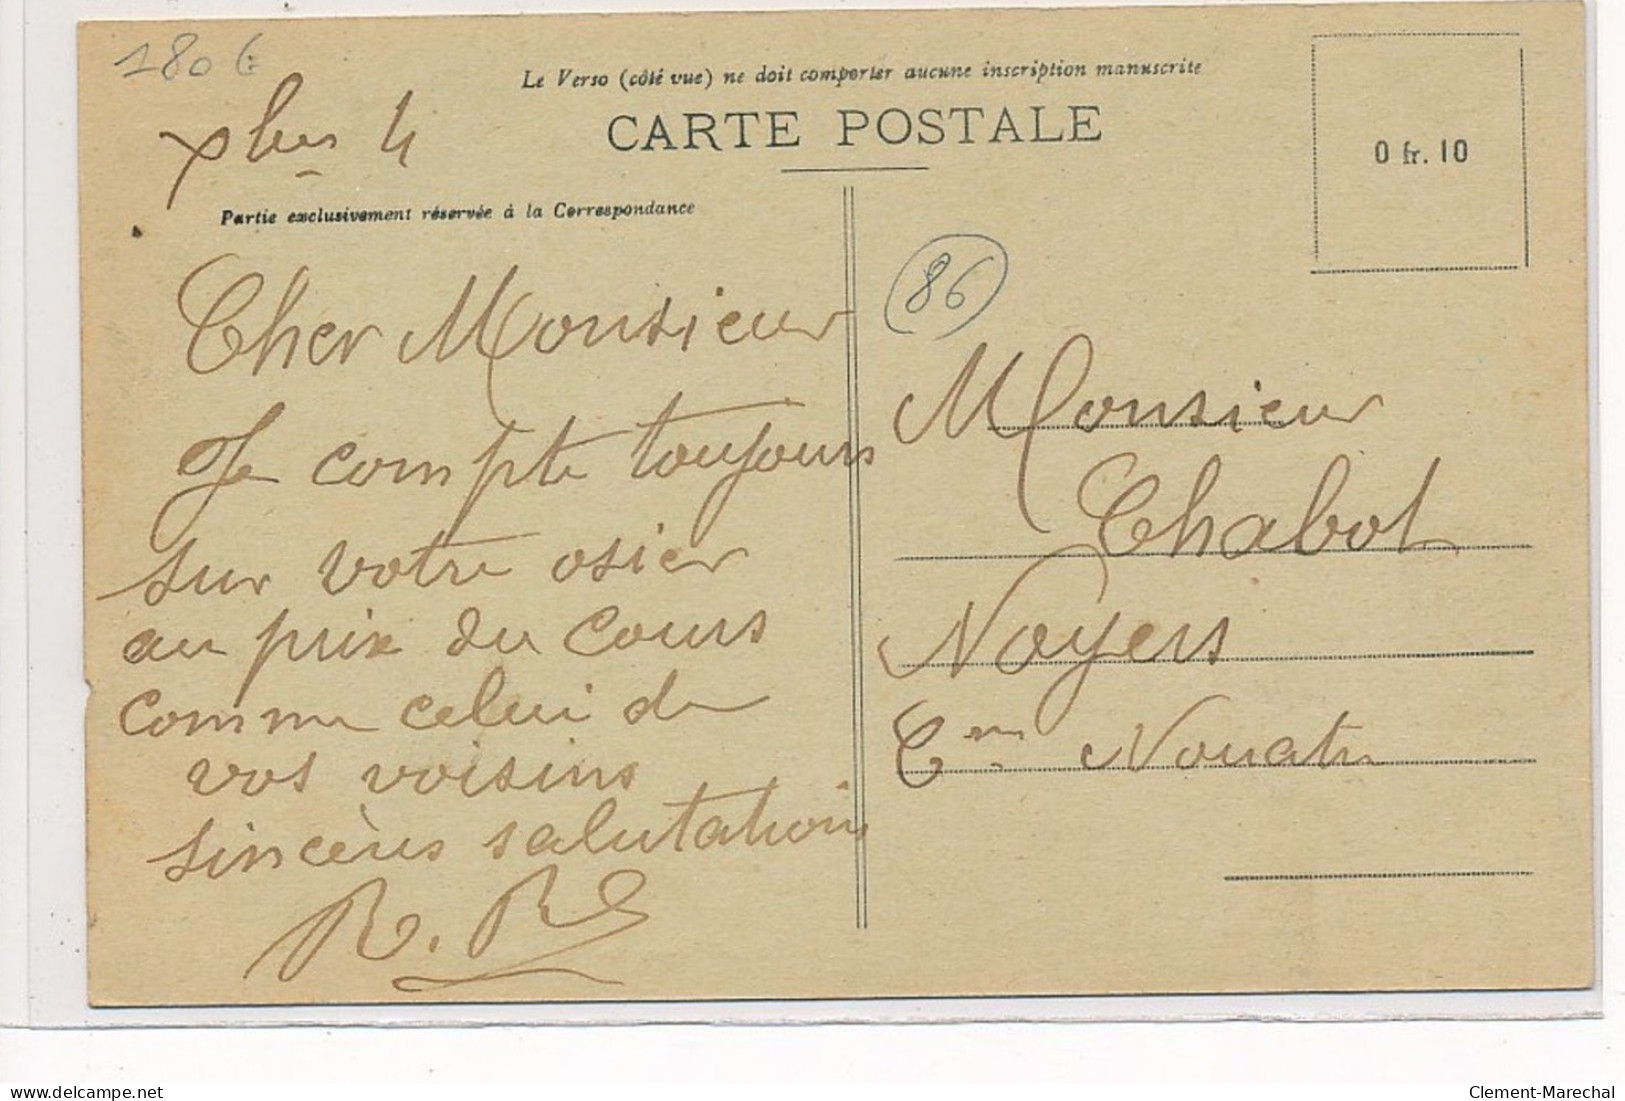 180 €
plus 4
Le Verso (côté vue) ne doit comporter aucune inscription manuscrite
CARTE POSTALE
0 fr. 10
Partie exclusivement réservée à la Correspondance
86
Cher Monsieur
Je compte toujours
sur votre osier
au prix du cours
comme celui de
vos voisins
sincères salutations
Monsieur
Chabot
Noyers
Cne Nouatre
delcampe.net
Clement-Marechal